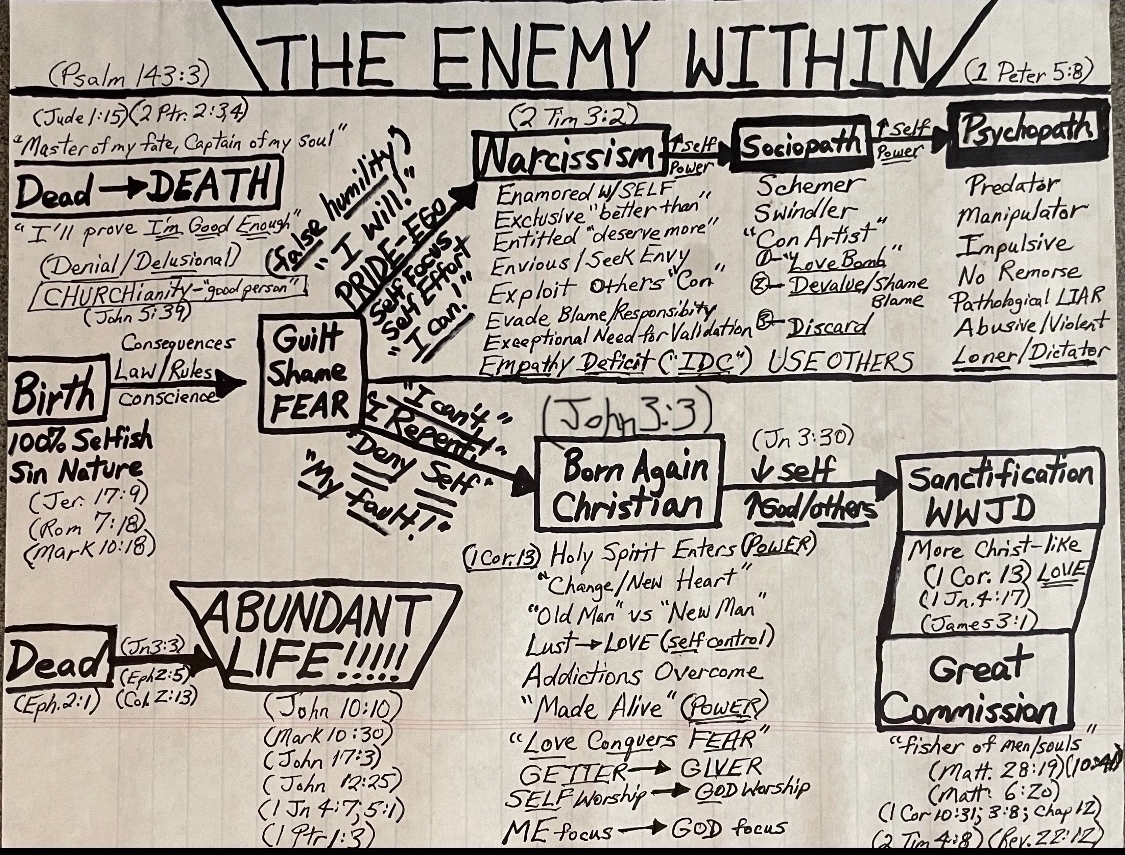 THE ENEMY WITHIN
(Psalm 143:3)
(1 Peter 5:8)
(Jude 1:15)(2 Ptr. 2:3,4)
"Master of my fate, Captain of my soul"
Dead → DEATH
"I'll prove I'm Good Enough"
(Denial/Delusional)
CHURCHianity-"good person"
(John 5:39)
(false humility)
"I will!"
PRIDE-EGO
Self Focus
Self Effort
"I can!"
(2 Tim 3:2)
Narcissism
↑ Self
Power
Enamored w/SELF
Exclusive "better than"
Entitled "deserve more"
Envious/Seek Envy
Exploit Others "Con"
Evade Blame/Responsibity
Exceptional Need for Validation
Empathy Deficit ("IDC")
Sociopath
↑ Self
Power
Schemer
Swindler
"Con Artist"
①-"Love Bomb"
②- Devalue/Shame
Blame
③- Discard
USE OTHERS
Psychopath
Predator
Manipulator
Impulsive
No Remorse
Pathological LIAR
Abusive/Violent
Loner/Dictator
Birth
Consequences
Law/Rules
conscience
100% Selfish
Sin Nature
(Jer. 17:9)
(Rom 7:18)
(Mark 10:18)
Guilt
Shame
FEAR
"I can't,"
"I Repent!"
"Deny Self"
"My fault!"
(John 3:3)
Born Again
Christian
(Jn 3:30)
↓ self
↑ God/others
Sanctification
WWJD
More Christ-like
(1 Cor. 13) LOVE
(1 Jn. 4:17)
(James 3:1)
Great
Commission
"fisher of men/souls"
(Matt. 28:19)(10:41)
(Matt. 6:20)
(1 Cor 10:31; 3:8; Chap 12)
(2 Tim 4:8) (Rev. 22:12)
(1 Cor. 13) Holy Spirit Enters (POWER)
"Change/New Heart"
"Old Man" vs "New Man"
Lust → LOVE (self control)
Addictions Overcome
"Made Alive" (POWER)
"Love Conquers FEAR"
GETTER → GIVER
SELF Worship → GOD Worship
ME focus → GOD focus
Dead
(Eph. 2:1)
(Jn 3:3)
(Eph 2:5)
(Col. 2:13)
ABUNDANT
LIFE!!!!!
(John 10:10)
(Mark 10:30)
(John 17:3)
(John 12:25)
(1 Jn 4:7; 5:1)
(1 Ptr 1:3)